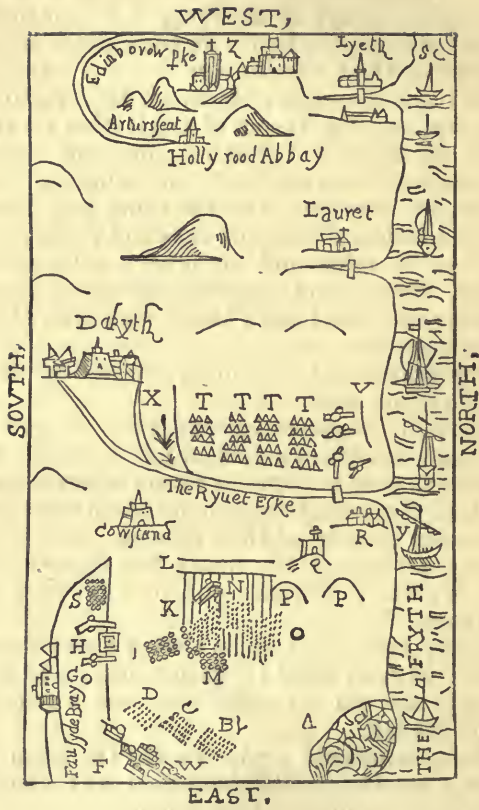 WEST,
Edinborow pke
Z
Lyeth
SC
Arturs seat
Hollyrood Abbay
Lauret
Dakyth
SOVTH,
NORTH,
X
T T T T
V
The Ryuet Eske
Cowstand
Q
R
Y
L
S
K
N
P P
H
O
I
M
G
D
C
B
A
Fauxsyde Bray
F
W
THE FRYTH
EAST.